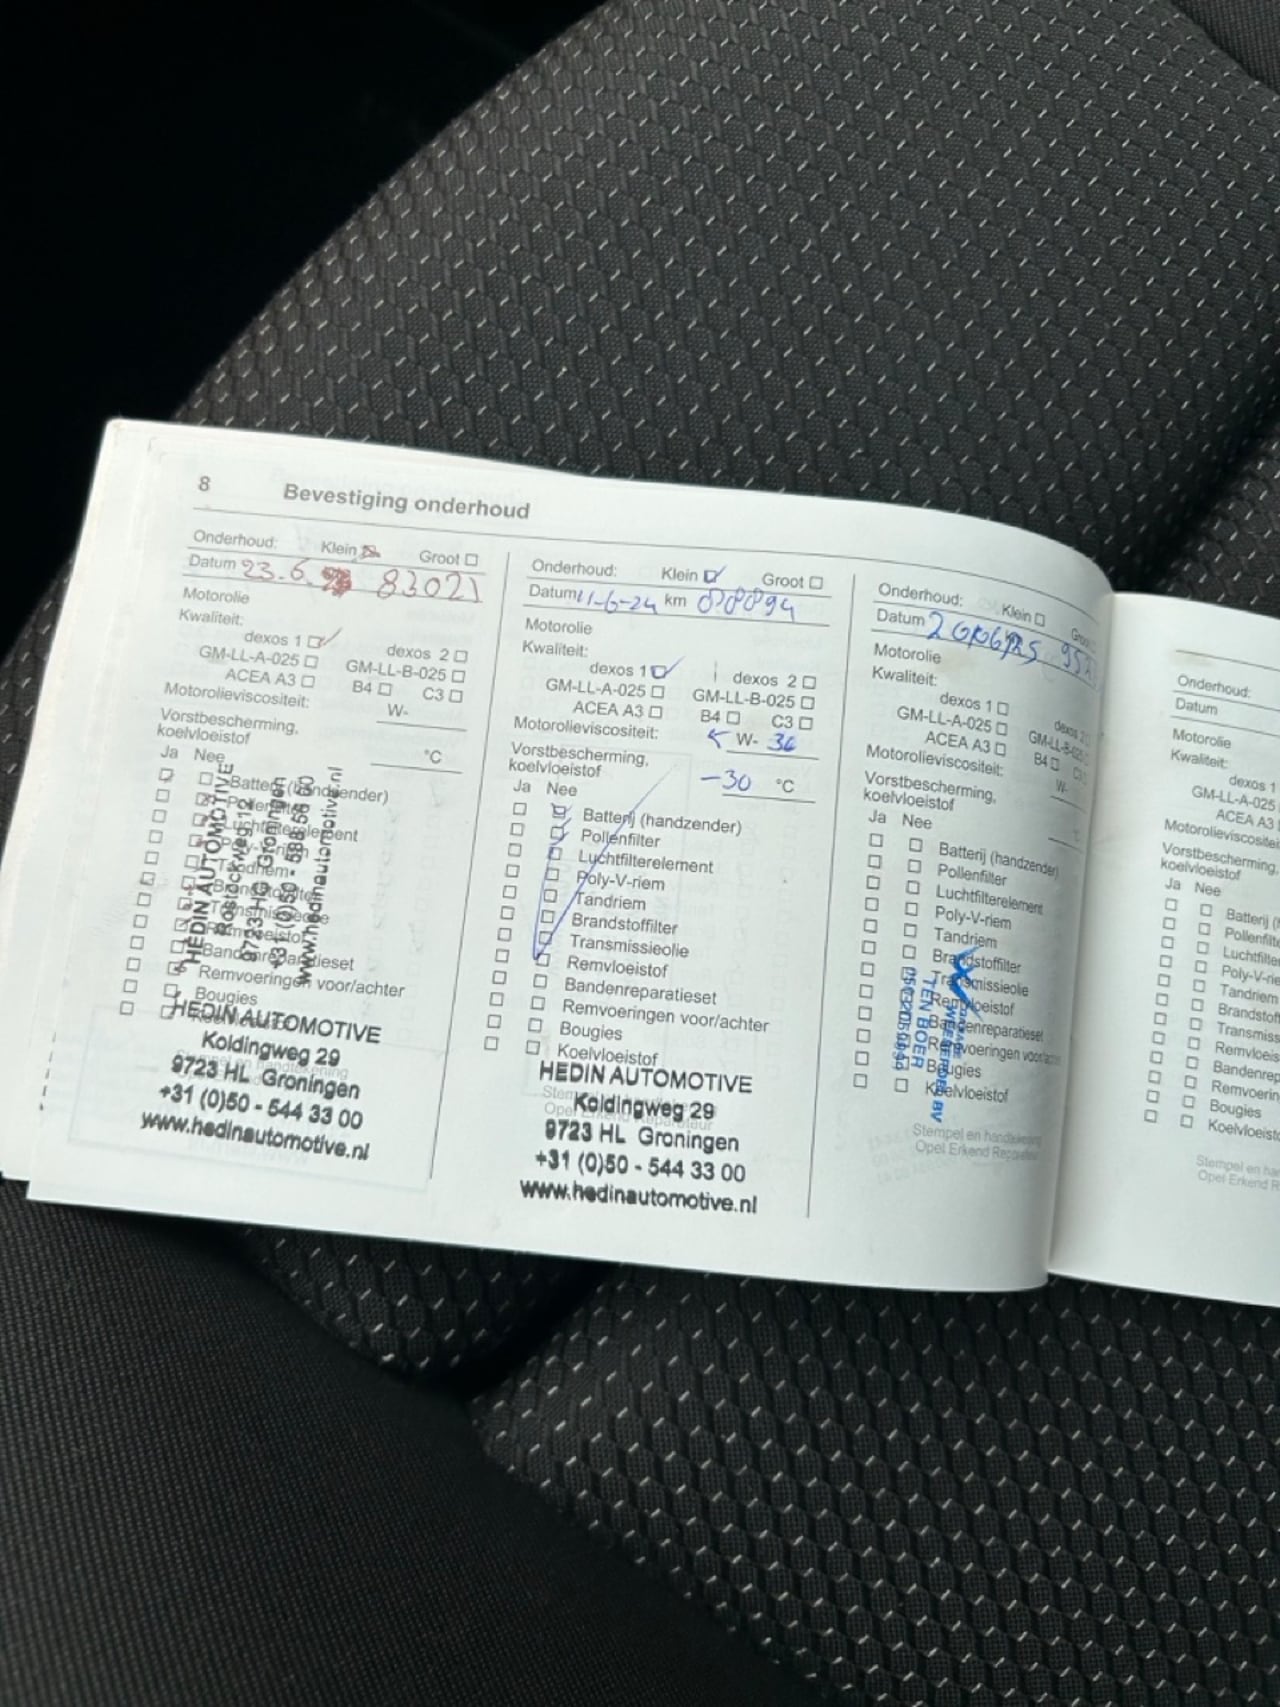 8 Bevestiging onderhoud
Onderhoud: Klein Groot
Datum 23.6. 83021
Motorolie
Kwaliteit:
dexos 1 dexos 2
GM-LL-A-025 GM-LL-B-025
ACEA A3 B4 C3
Motorolieviscositeit: W-
Vorstbescherming,
koelvloeistof °C
Ja Nee
Batterij (handzender)
Pollenfilter
Luchtfilterelement
Poly-V-riem
Tandriem
Brandstoffilter
Transmissieolie
Remvloeistof
Bandenreparatieset
Remvoeringen voor/achter
Bougies
Koelvloeistof
HEDIN AUTOMOTIVE
Rostockweg 12
9723 HG Groningen
www.hedinautomotive.nl
HEDIN AUTOMOTIVE
Koldingweg 29
9723 HL Groningen
+31 (0)50 - 544 33 00
www.hedinautomotive.nl
Onderhoud: Klein Groot
Datum 11-6-24 km 88894
Motorolie
Kwaliteit:
dexos 1 dexos 2
GM-LL-A-025 GM-LL-B-025
ACEA A3 B4 C3
Motorolieviscositeit: 5 W- 30
Vorstbescherming,
koelvloeistof -30 °C
Ja Nee
Batterij (handzender)
Pollenfilter
Luchtfilterelement
Poly-V-riem
Tandriem
Brandstoffilter
Transmissieolie
Remvloeistof
Bandenreparatieset
Remvoeringen voor/achter
Bougies
Koelvloeistof
HEDIN AUTOMOTIVE
Koldingweg 29
9723 HL Groningen
+31 (0)50 - 544 33 00
www.hedinautomotive.nl
Onderhoud: Klein
Datum
Motorolie
Kwaliteit:
dexos 1 dexos 2
GM-LL-A-025 GM-LL-B-025
ACEA A3 B4
Motorolieviscositeit: W-
Vorstbescherming,
koelvloeistof
Ja Nee
Batterij (handzender)
Pollenfilter
Luchtfilterelement
Poly-V-riem
Tandriem
Brandstoffilter
Transmissieolie
Remvloeistof
Bandenreparatieset
Remvoeringen voor/achter
Bougies
Koelvloeistof
TEN BOER
Stempel en handtekening
Opel Erkend Reparateur
Onderhoud:
Datum
Motorolie
Kwaliteit:
dexos 1
GM-LL-A-025
ACEA A3
Motorolieviscositeit
Vorstbescherming,
koelvloeistof
Ja Nee
Batterij
Pollenfilte
Luchtfilter
Poly-V-rie
Tandriem
Brandstof
Transmiss
Remvloeis
Bandenrep
Remvoerin
Bougies
Koelvloeisto
Stempel en ha
Opel Erkend R